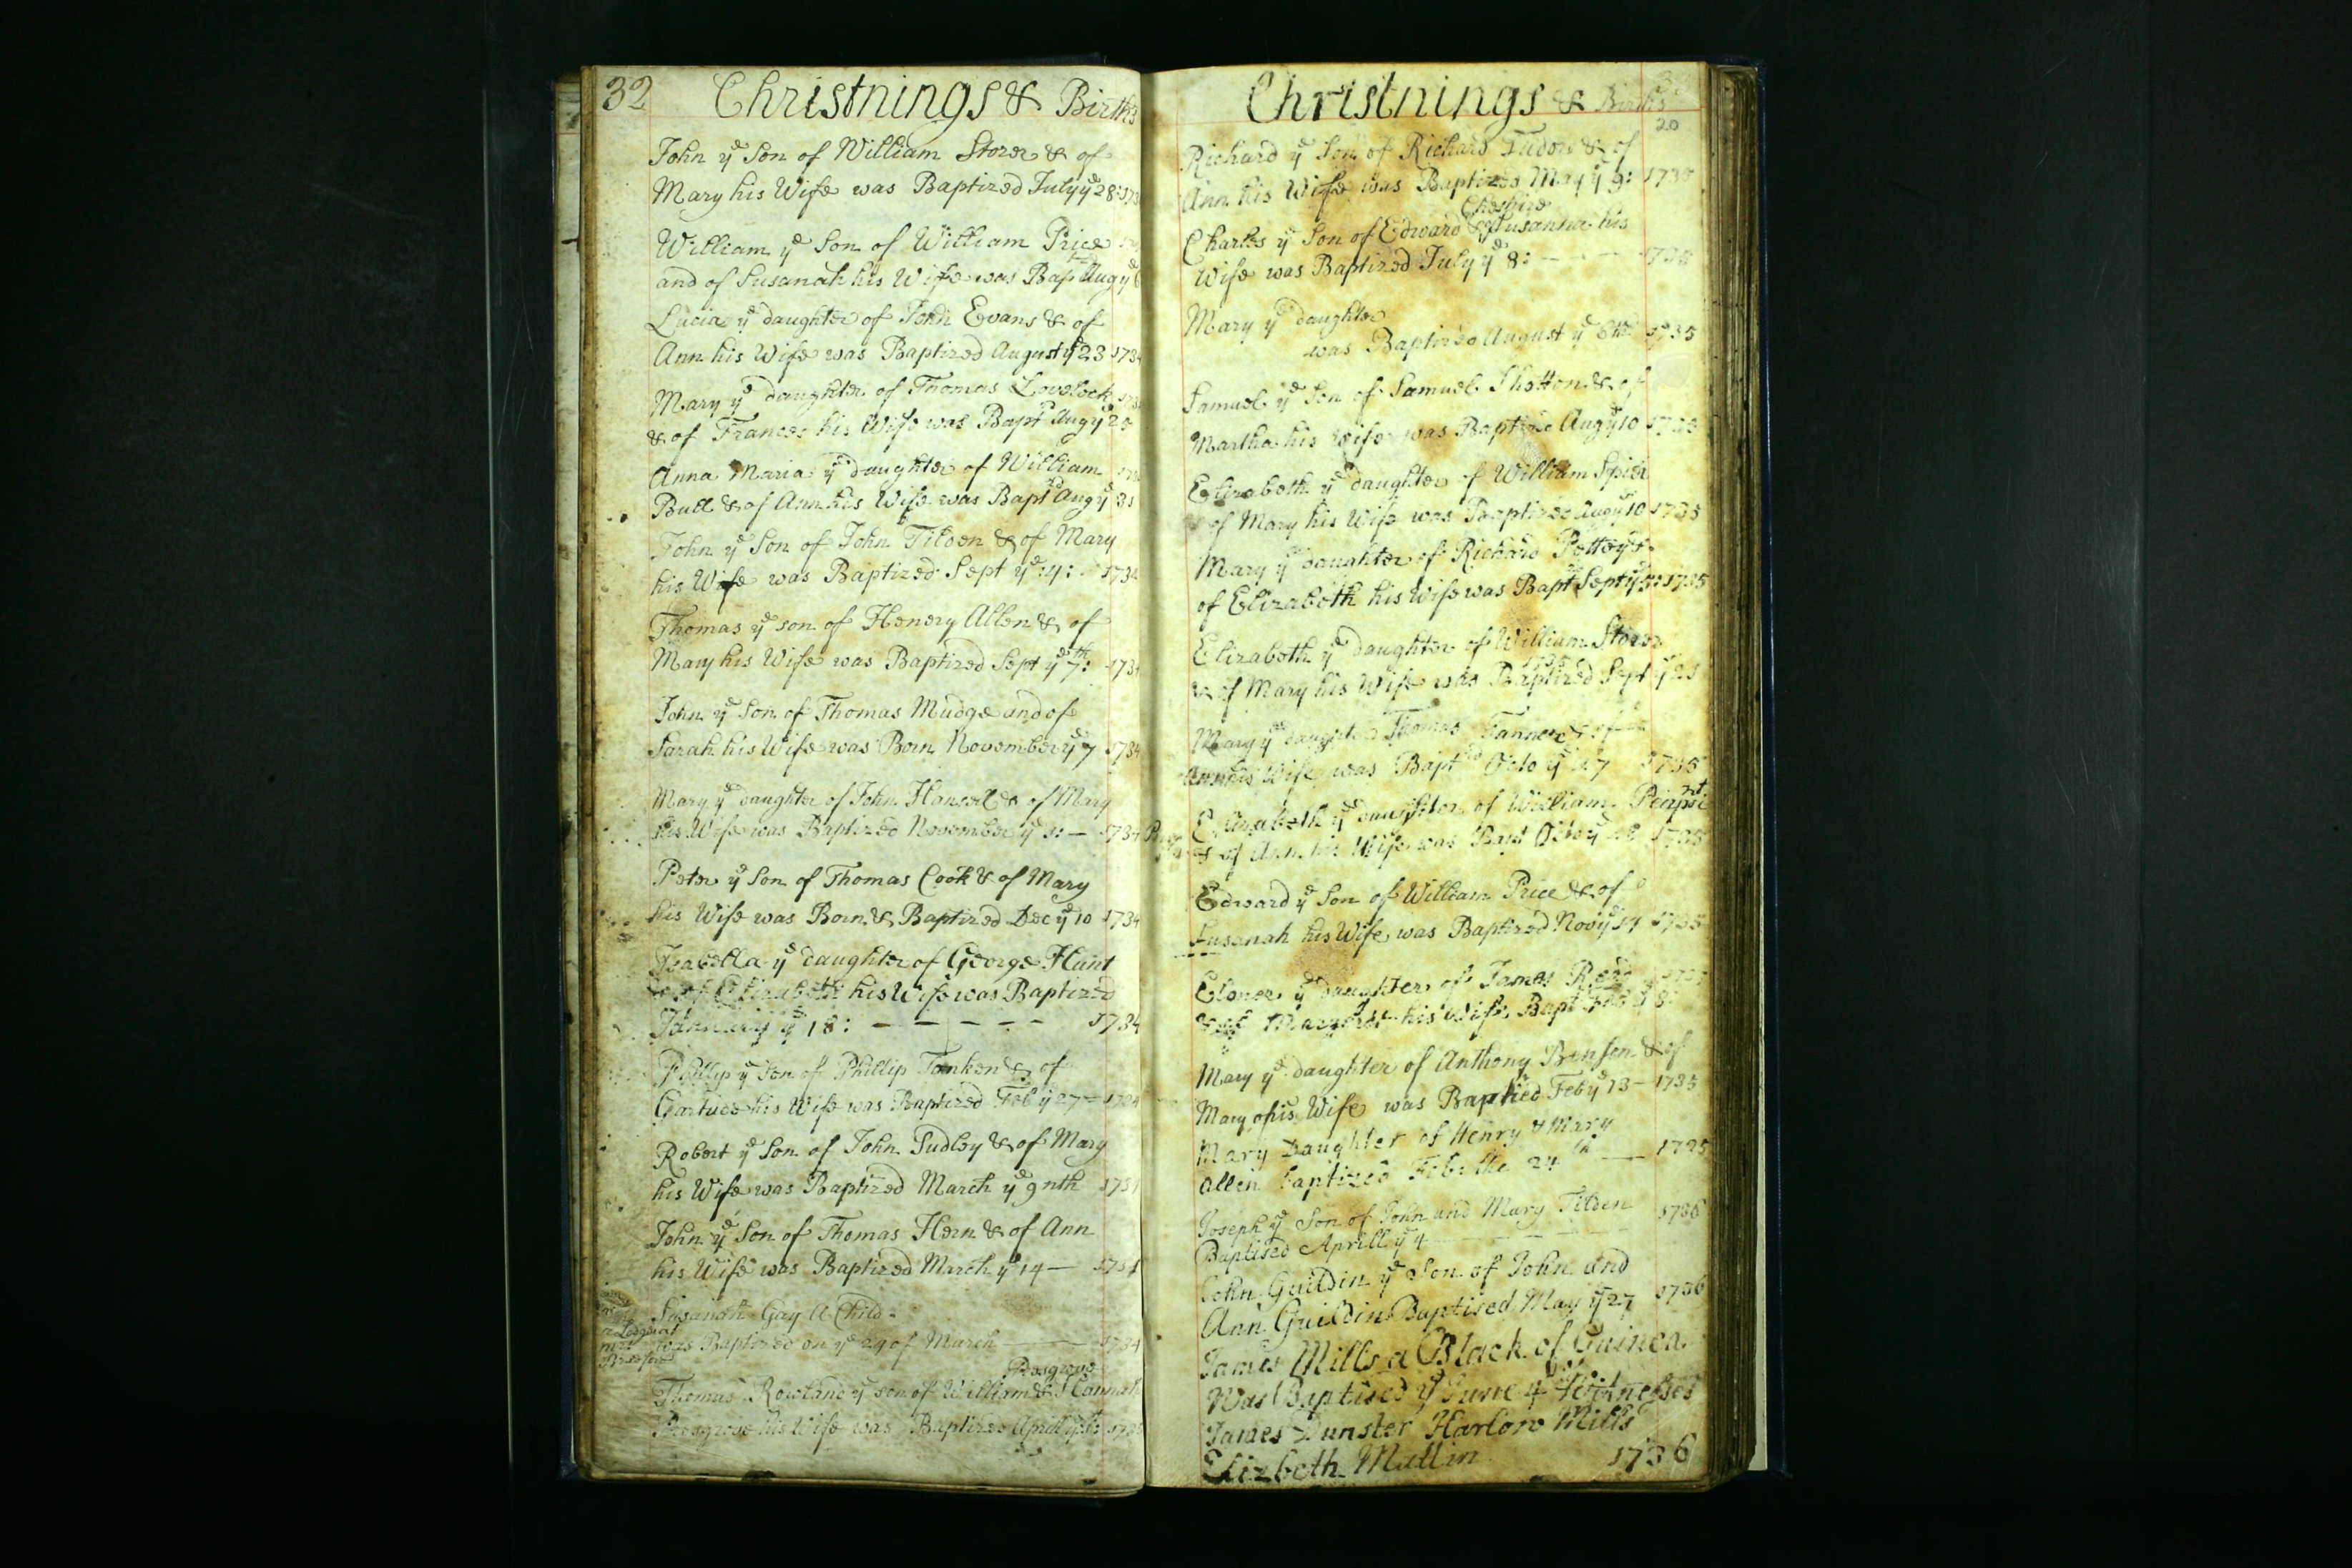 32 Christnings & Births
John yᵉ Son of William Storer & of
Mary his Wife was Baptized July yᵉ 28: 173
William yᵉ Son of William Price
and of Susanah his Wife was Bap Aug yᵉ 6
Lucia yᵉ daughter of John Evans & of
Ann his Wife was Baptized August yᵉ 23 1734
Mary yᵉ daughter of Thomas Lovelock
& of Frances his Wife was Bapt Aug yᵉ 25
Anna Maria yᵉ daughter of William
Bull & of Ann his Wife was Bapt Aug yᵉ 31
John yᵉ Son of John Tilden & of Mary
his Wife was Baptized Sept yᵉ :4: 1734
Thomas yᵉ son of Henery Allen & of
Mary his Wife was Baptized Sept yᵉ 7ᵗʰ: 1734
John yᵉ Son of Thomas Mudge and of
Sarah his Wife was Born November yᵉ 7 1734
Mary yᵉ daughter of John Hansel & of Mary
his Wife was Baptized November yᵉ : — 1734
Peter yᵉ Son of Thomas Cook & of Mary
his Wife was Born & Baptized Dec yᵉ 10 1734
Isabella yᵉ daughter of George Hunt
& of Elizabeth his Wife was Baptized
January yᵉ 18: — — — — — 1734
Phillip yᵉ Son of Phillip Tonken & of
his Wife was Baptized Feb yᵉ 27 — 1734
Robert yᵉ Son of John Sudley & of Mary
his Wife was Baptized March yᵉ 9nth 1734
John yᵉ Son of Thomas Hern & of Ann
his Wife was Baptized March yᵉ 14 —
Susanah Gay A Child
was Baptized on yᵉ 29 of March — 1734
Prosgrove
Thomas Rowland yᵉ son of William & Hannah
Prosgrove his Wife was Baptized Aprill yᵉ
Christnings & Births
20
Richard yᵉ Son of Richard Tudor & of
Ann his Wife was Baptized May yᵉ 9: 1735
Cheshire
Charles yᵉ Son of Edward & Susanna his
Wife was Baptized July yᵉ 8: — 1735
Mary yᵉ daughter
was Baptized August yᵉ 6th 1735
Samuel yᵉ Son of Samuel Shotton & of
Martha his wife was Baptized Aug yᵉ 10 1735
Elizabeth yᵉ daughter of William Spier
of Mary his Wife was Baptized Aug yᵉ 10 1735
Mary yᵉ daughter of Richard &
of Elizabeth his Wife was Bapt Sept yᵉ 1735
Elizabeth yᵉ daughter of William Storer
1735
& of Mary his Wife was Baptized Sept yᵉ 21
Mary yᵉ daughter Thomas Tanner & of
Ann his Wife was Bapt Octo yᵉ 17 1735
Elizabeth yᵉ daughter of William
& of Ann his Wife was Bapt Octo yᵉ 1735
Edward yᵉ Son of William Price & of
Susanah his Wife was Baptized Nov yᵉ 14 1735
Eloner yᵉ daughter of James
Mary his Wife Bapt yᵉ 8:
Mary yᵉ daughter of Anthony Benson & of
Mary his Wife was Baptized Feb yᵉ 13 — 1735
Mary Daughter of Henry & Mary
Allen Baptized Feb: the 24th — 1735
Joseph yᵉ Son of John and Mary Tilden 1736
Baptised Aprill yᵉ 4
John Guildin yᵉ Son of John and
Ann Guildin Baptised May yᵉ 27 1736
James Mills a Black of Guinea
Was Baptised yᵉ June 4 Witnesses
James Dunster Harlow Mills
Elizbeth Mullin 1736